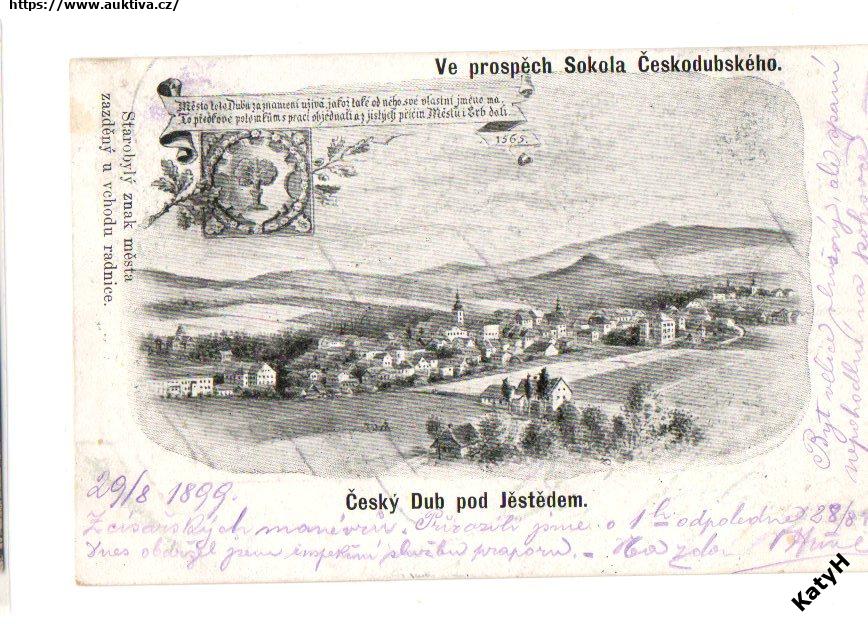 https://www.auktiva.cz/
Ve prospěch Sokola Českodubského.
Město toto Dubu za znamení užívá, jakož také od něho své vlastní jméno má.
To předkové potomkům s prací objednali a z jistých příčin Městu i Erb dali.
1565.
Starobylý znak města
zazděný u vchodu radnice.
Český Dub pod Jěstědem.
29/8 1899.
Z císařských manévrů. Přirazili jsme o 1 h odpoledne 28/8
dnes obdržel jsem inspekční službu praporu. – Na zdar
Byt velice slušný, ale spaní
nepohodlné
KatyH